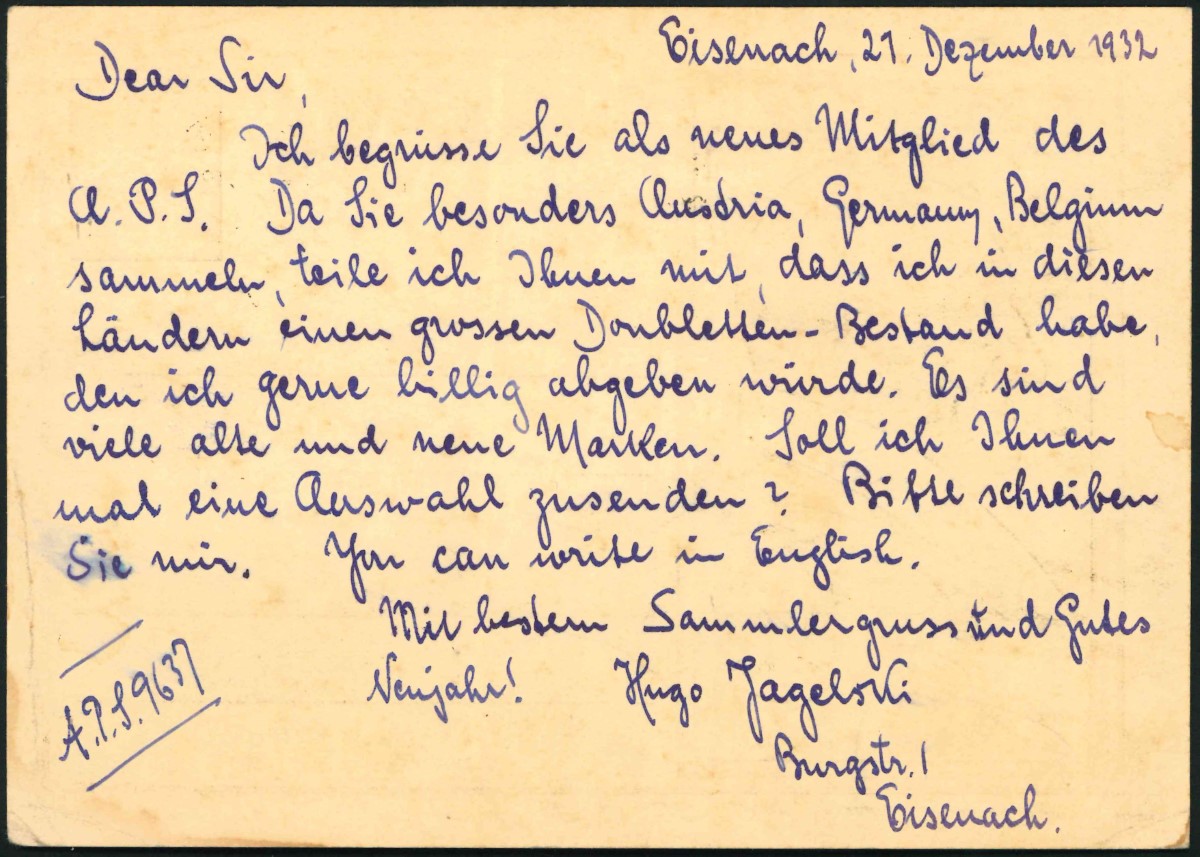 Eisenach, 21. Dezember 1932
Dear Sir,
Ich begrüsse Sie als neues Mitglied des
A. P. S. Da Sie besonders Austria, Germany, Belgium
sammeln, teile ich Ihnen mit, dass ich in diesen
Ländern einen grossen Doubletten-Bestand habe,
den ich gerne billig abgeben würde. Es sind
viele alte und neue Marken. Soll ich Ihnen
mal eine Auswahl zusenden? Bitte schreiben
Sie mir. You can write in English.
Mit bestem Sammlergruss und Gutes
Neujahr! Hugo Jagelski
A.P.S. 9637
Burgstr. 1
Eisenach.